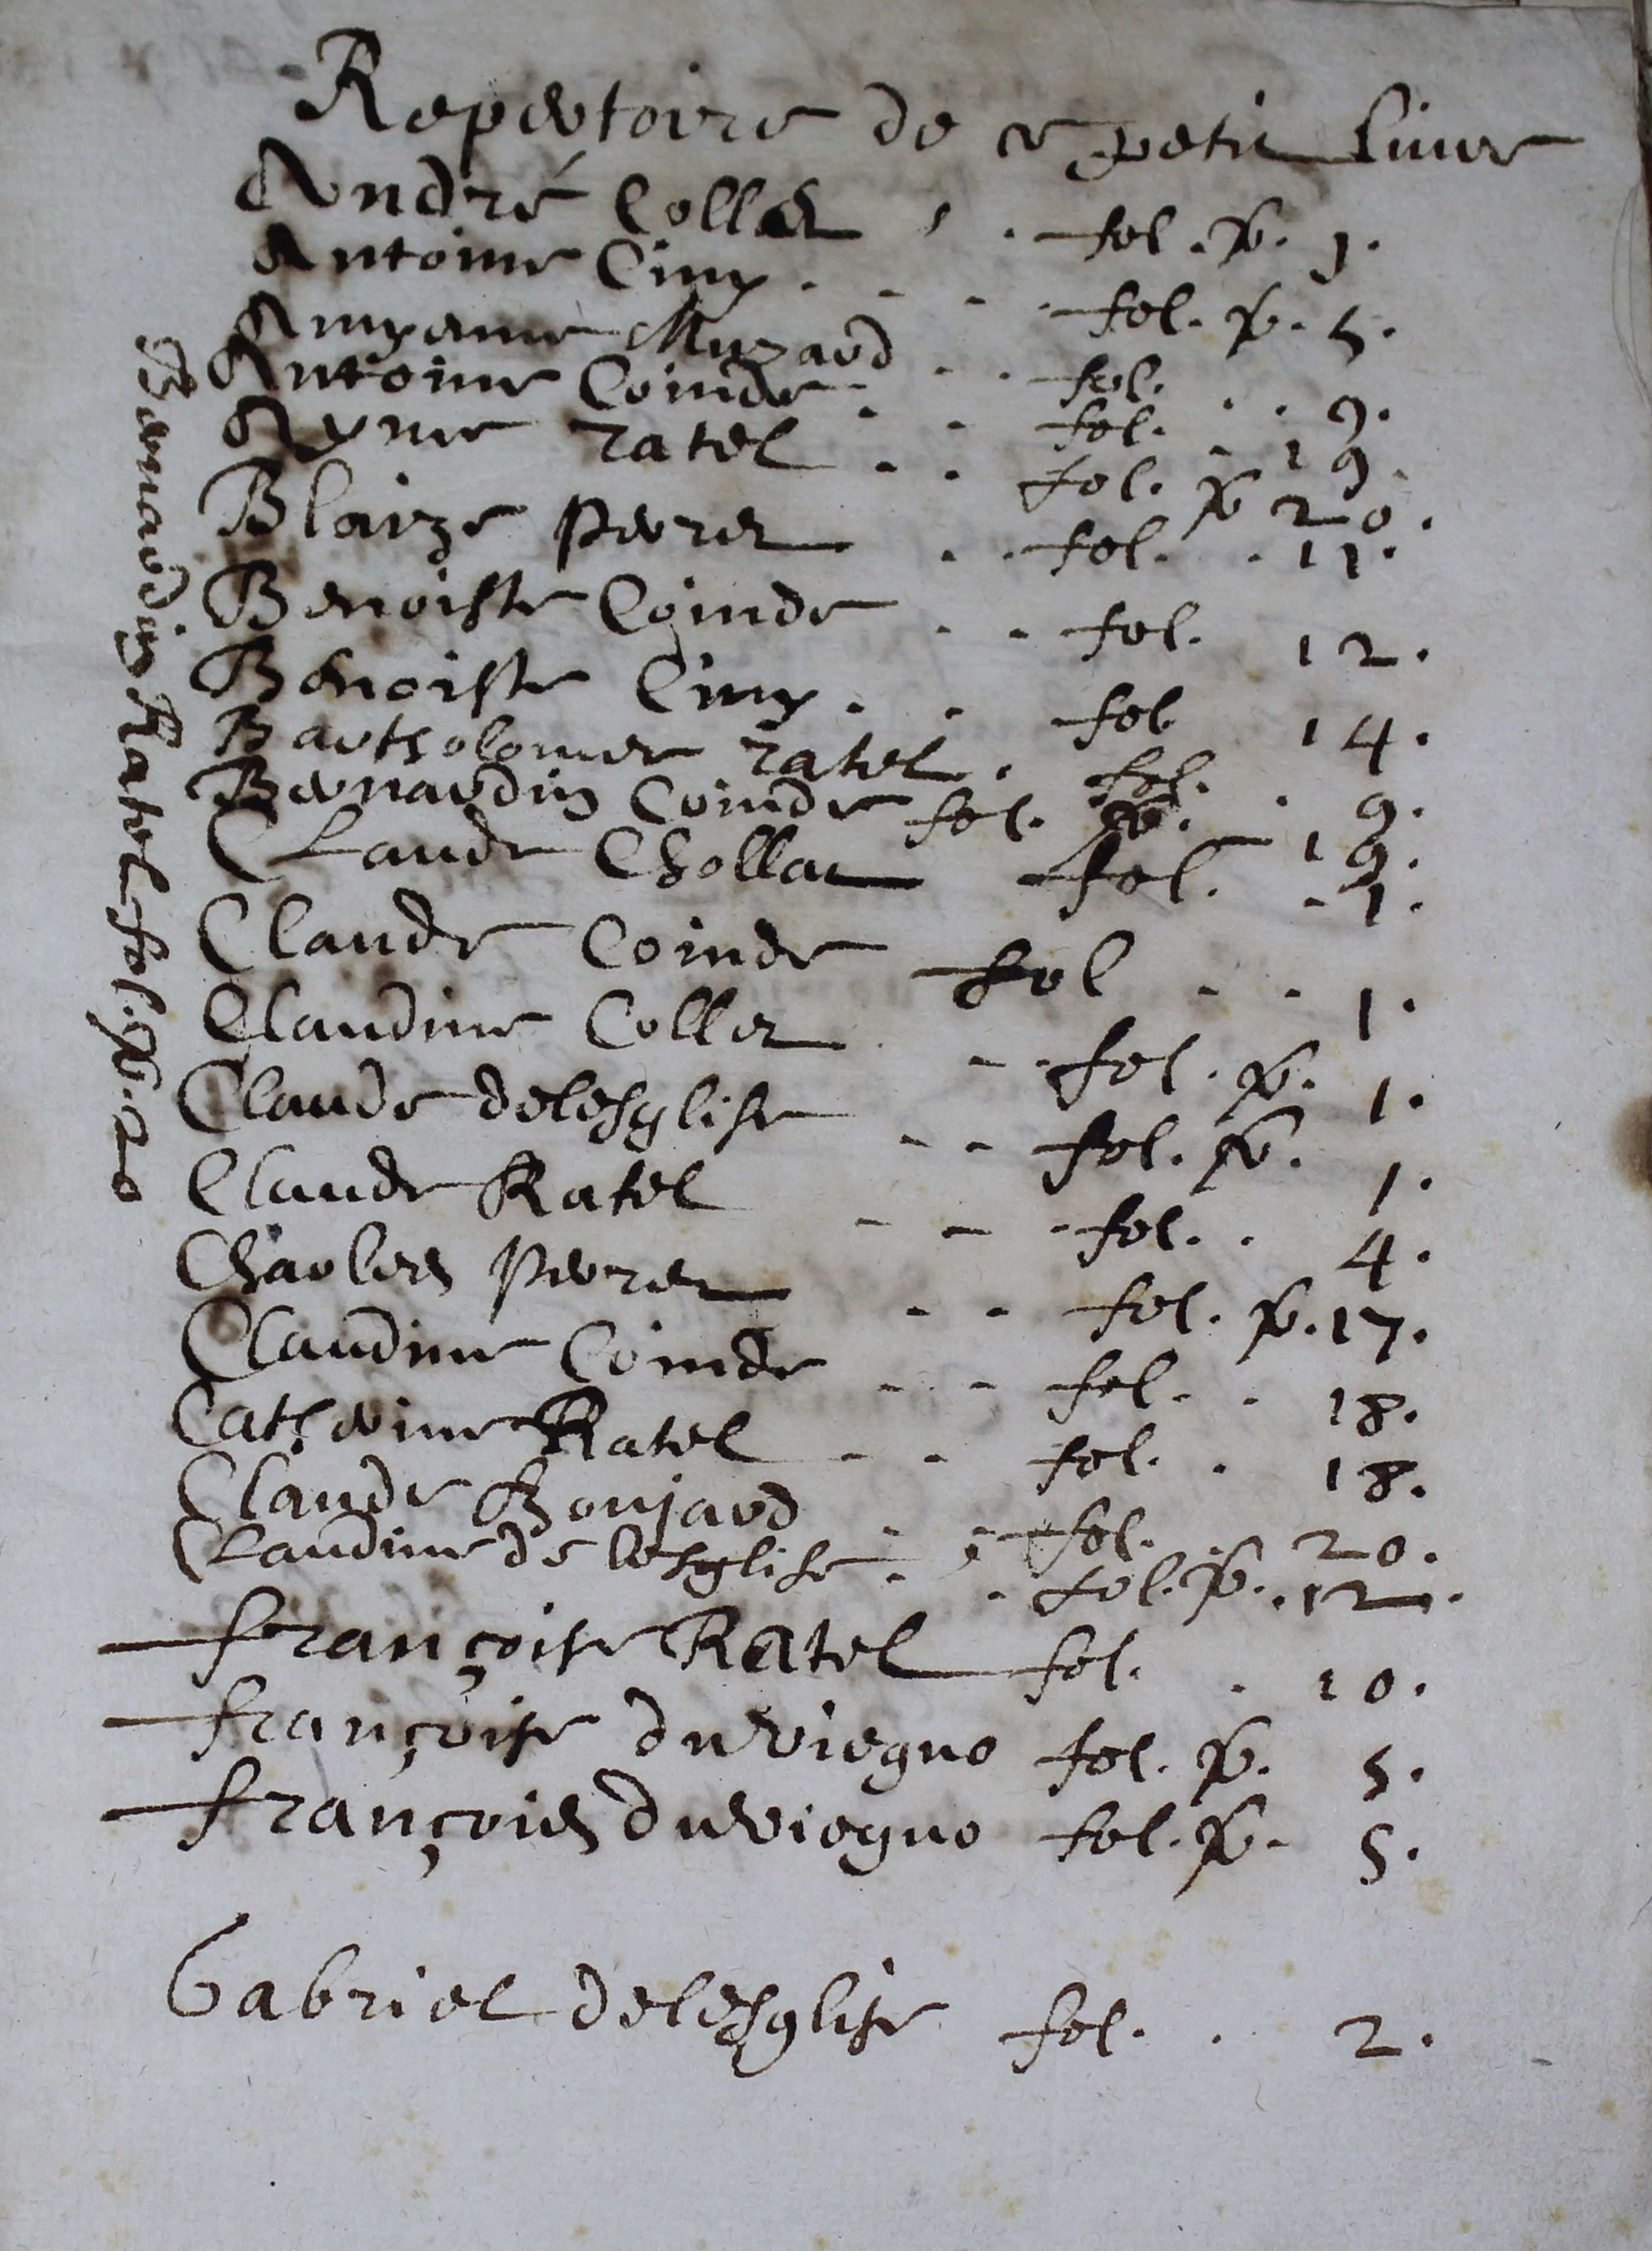 Repertoire de ce petit liure
André Collet . . fol. p. 1.
Antoine Cinx . . . . fol. p. 5.
Muzard . . fol. . . 9.
Antoine Coinde . . . fol. . 19.
Ayme ratel . . fol. p 20.
Blaize perret . . fol. . 11.
Benoiste Coinde . . fol. 12.
Benoiste Cinx . . fol 14.
Bartholomee ratel . fol. . 9.
Bernardin Coinde fol. p. 19.
Claude Chollat fol. . 1.
Claude Coinde fol . . 1.
Claudine Collet . . fol. p. 1.
Claude delesglise . . fol. p. 1.
Claude Ratel . . . fol. . 4.
Charles perret . . fol. p. 17.
Claudine Coinde . . fol. . 18.
Catherine Ratel . . fol. . 18.
Claude Bonjard . . fol. . 20.
Claudine de lesglise . . fol. p. . 12.
françoise Ratel fol. . 10.
françoise duviegno fol. p. 5.
françois duviegno fol. p. 5.
Gabriel delesglise fol. . 2.
Bernardin Ratel fol. p. 20